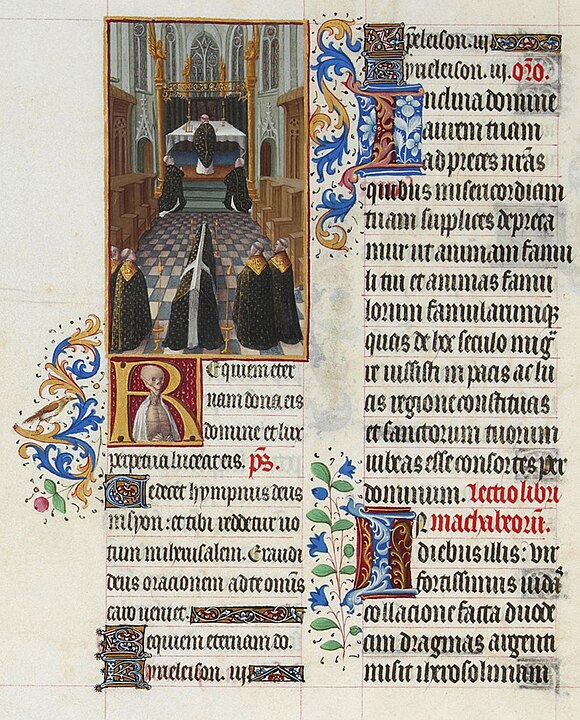 Requiem eter
nam dona eis
domine et lux
perpetua luceat eis. ps.
Te decet hympnus deus
in syon: et tibi reddetur vo
tum in iherusalem. Exaudi
deus orationem ad te omnis
caro veniet.
Requiem eternam do.
Kyrieleison. iij
Xpeleison. iij
Kyrieleison. iij. oro.
Inclina domine
aurem tuam
ad preces nras
quibus misericordiam
tuam supplices depreca
mur ut animam famu
li tui et animas famu
lorum famularumq
quas de hoc seculo mig
re iussisti in pacis ac lu
cis regione constituas
et sanctorum tuorum
iubeas esse consortes per
dominum. Lectio libri
In machabeorum.
diebus illis: vir
fortissimus iudas
collacione facta duode
cim dragmas argenti
misit iherosolimam